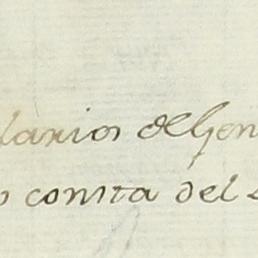 larios del Gen
consta del